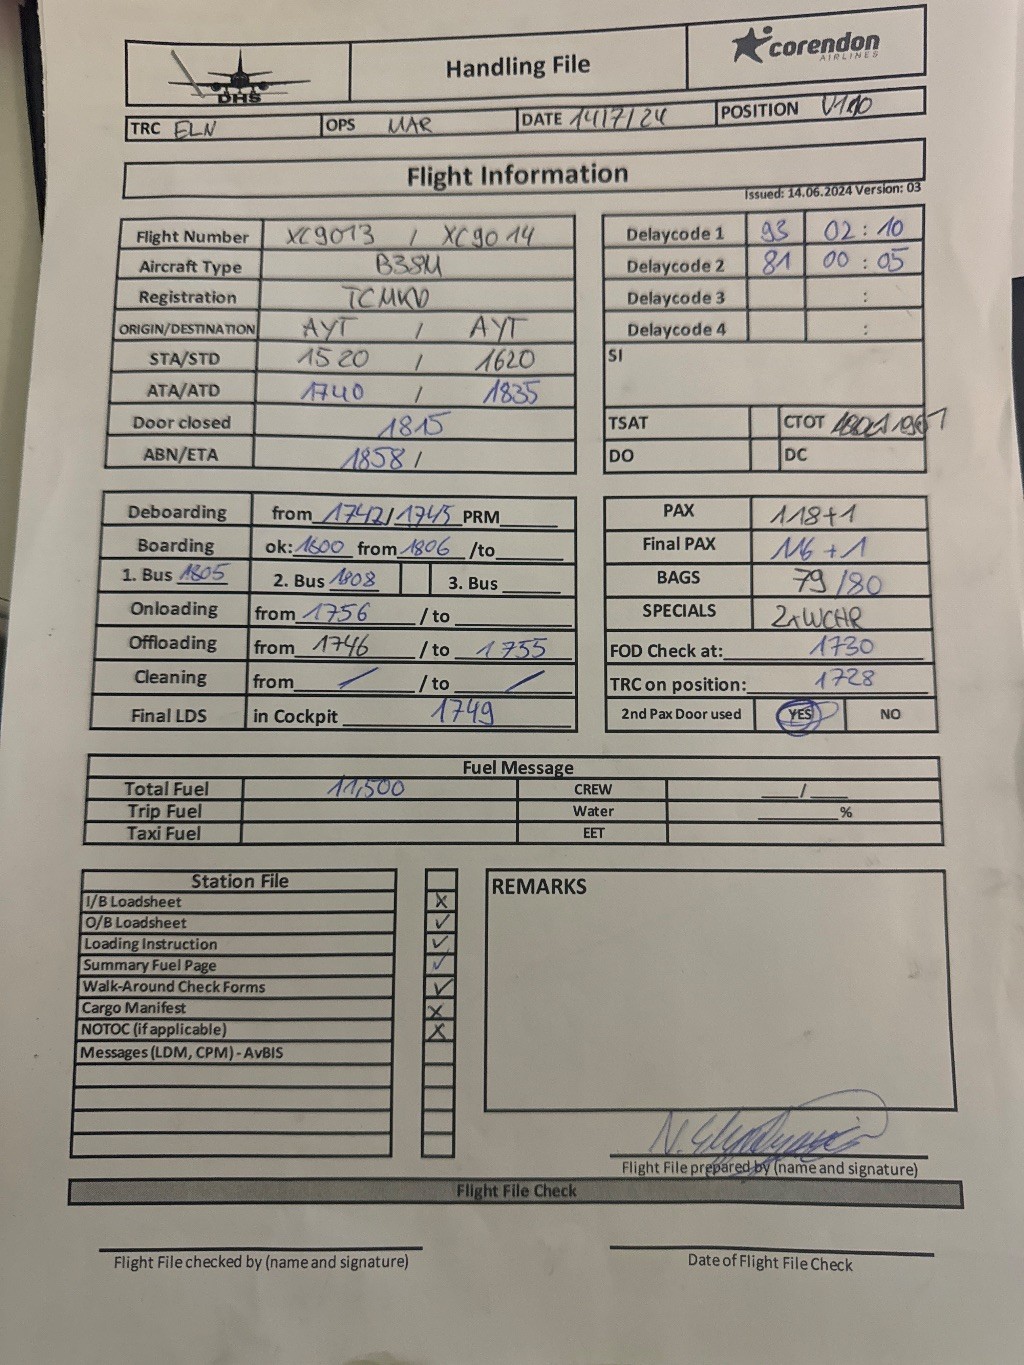 DHS
Handling File
corendon
AIRLINES
TRC ELN OPS MAR DATE 14/7/24 POSITION V110
Flight Information
Issued: 14.06.2024 Version: 03
Flight Number XC9013 / XC9014
Aircraft Type B38M
Registration TCMKD
ORIGIN/DESTINATION AYT / AYT
STA/STD 1520 / 1620
ATA/ATD 1740 / 1835
Door closed 1815
ABN/ETA 1858 /
Delaycode 1 93 02 : 10
Delaycode 2 81 00 : 05
Delaycode 3 :
Delaycode 4 :
SI
TSAT CTOT
DO DC
Deboarding from 1742/1745 PRM
Boarding ok: 1800 from 1806 /to
1. Bus 1805 2. Bus 1808 3. Bus
Onloading from 1756 / to
Offloading from 1746 / to 1755
Cleaning from / / to /
Final LDS in Cockpit 1749
PAX 118+1
Final PAX 116 +1
BAGS 79/80
SPECIALS 2xWCHR
FOD Check at: 1730
TRC on position: 1728
2nd Pax Door used YES NO
Fuel Message
Total Fuel 11,500 CREW /
Trip Fuel Water %
Taxi Fuel EET
Station File
I/B Loadsheet X
O/B Loadsheet ✓
Loading Instruction ✓
Summary Fuel Page ✓
Walk-Around Check Forms ✓
Cargo Manifest X
NOTOC (if applicable) X
Messages (LDM, CPM) - AvBIS
REMARKS
Flight File prepared by (name and signature)
Flight File Check
Flight File checked by (name and signature)
Date of Flight File Check